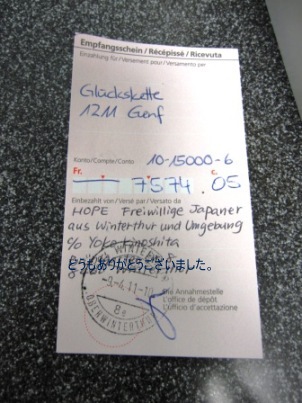 Empfangsschein / Récépissé / Ricevuta
Einzahlung für / Versement pour / Versamento per
Glückskette
1211 Genf
Konto / Compte / Conto 10-15000-6
Fr. c.
7574.05
Einbezahlt von / Versé par / Versato da
HOPE Freiwillige Japaner
aus Winterthur und Umgebung
c/o Yoko Kinoshita
どうもありがとうございました。
-8.-4.11-10
8a
OBERWINTERTHUR
Die Annahmestelle
L'office de dépôt
L'ufficio d'accettazione